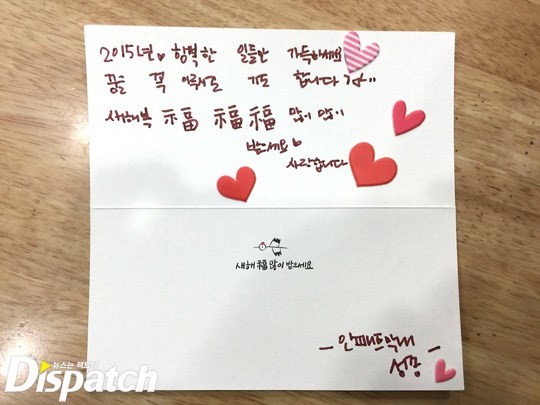 2015년 행복한 일들만 가득하세요
꿈을 꼭 이루시길 기도 합니다
새해복 福 福 福 많이 많이
받으세요
사랑합니다
새해 福 많이 받으세요
성종
뉴스는 팩트다
Dispatch